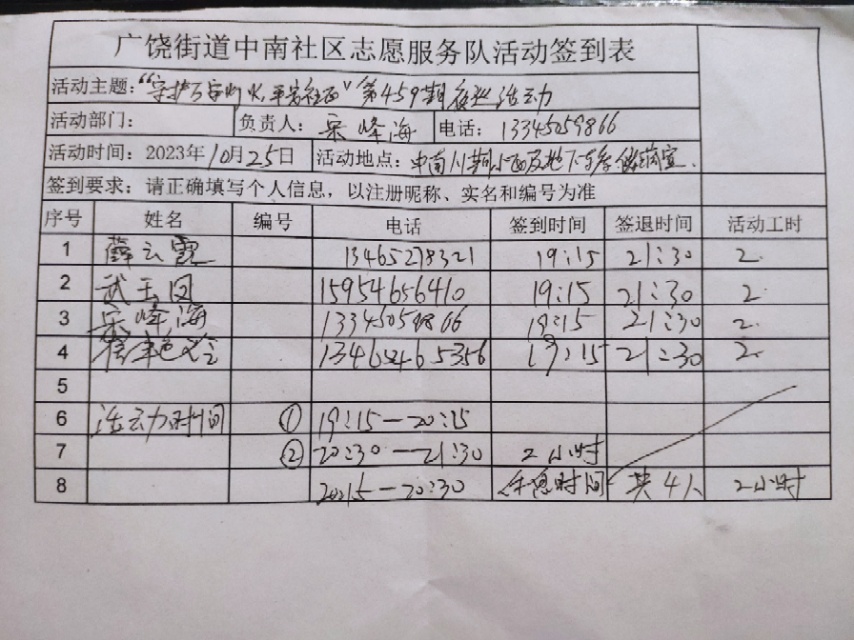 广饶街道中南社区志愿服务队活动签到表
活动主题：“守护万家灯火，平安社区”第459期夜巡活动
活动部门： 负责人： 峰海 电话： 13345059866
活动时间：2023年10月25日 活动地点：中南小区及地下车库
签到要求：请正确填写个人信息，以注册昵称、实名和编号为准
序号 姓名 编号 电话 签到时间 签退时间 活动工时
1 薛云霞 13465278321 19:15 21:30 2
2 武玉凤 15954656410 19:15 21:30 2
3 峰海 13345059866 19:15 21:30 2
4 19:15 21:30 2
5
6 活动时间 ① 19:15—20:15
7 ② 20:30—21:30 2小时
8 2015—20:30 休息时间 共4人 2小时